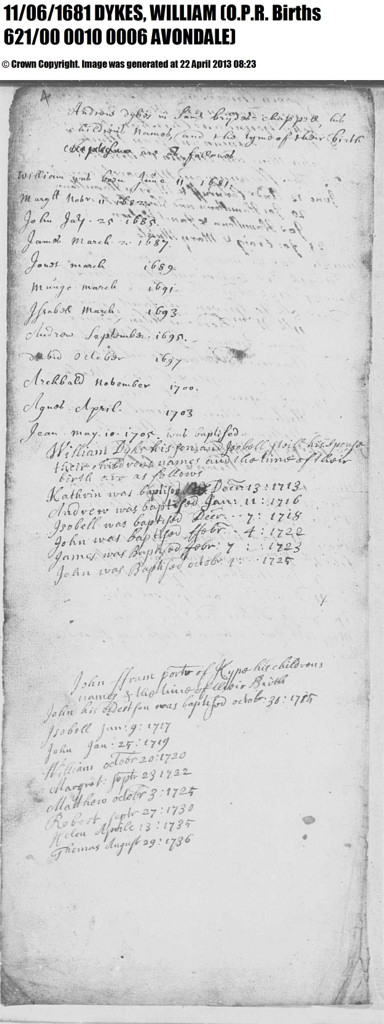 11/06/1681 DYKES, WILLIAM (O.P.R. Births
621/00 0010 0006 AVONDALE)
© Crown Copyright. Image was generated at 22 April 2013 08:23
Andrew dykes in Sant brydes chappell his
children Names and the tyme of their birth
are as followes
William was born June 11 1681
Novr 11 1682
John July 25 1685
James March 2 1687
Jonet march 1689
Mungo march 1691
Issobell March 1693
Andrew September 1695
david october 1697
Archbald November 1700
Agnes April 1703
Jean may 10 1705 was baptised
William Dyks his son and Isobell his spouse
their childrens names and the time of their
birth are as follows
Kathrin was baptised Decr: 13: 1713
Andrew was baptised Jan: 11: 1716
Isobell was baptised Decr: 7: 1718
John was baptised ffebr: 4: 1722
James was Baptised febr: 7: 1723
John was Baptised october 1: 1725
John ffram of Kype his childrens
names & the time of their Birth
John his eldest son was baptised octobr: 30: 1715
Isobell Jan: 9: 1717
John Jan: 25: 1719
William octobr 20: 1720
Margret: Septr 23 1722
Matthew octobr 3: 1725
Robert septr 27: 1730
Helen Aprile 13: 1735
Thomas August 29: 1736